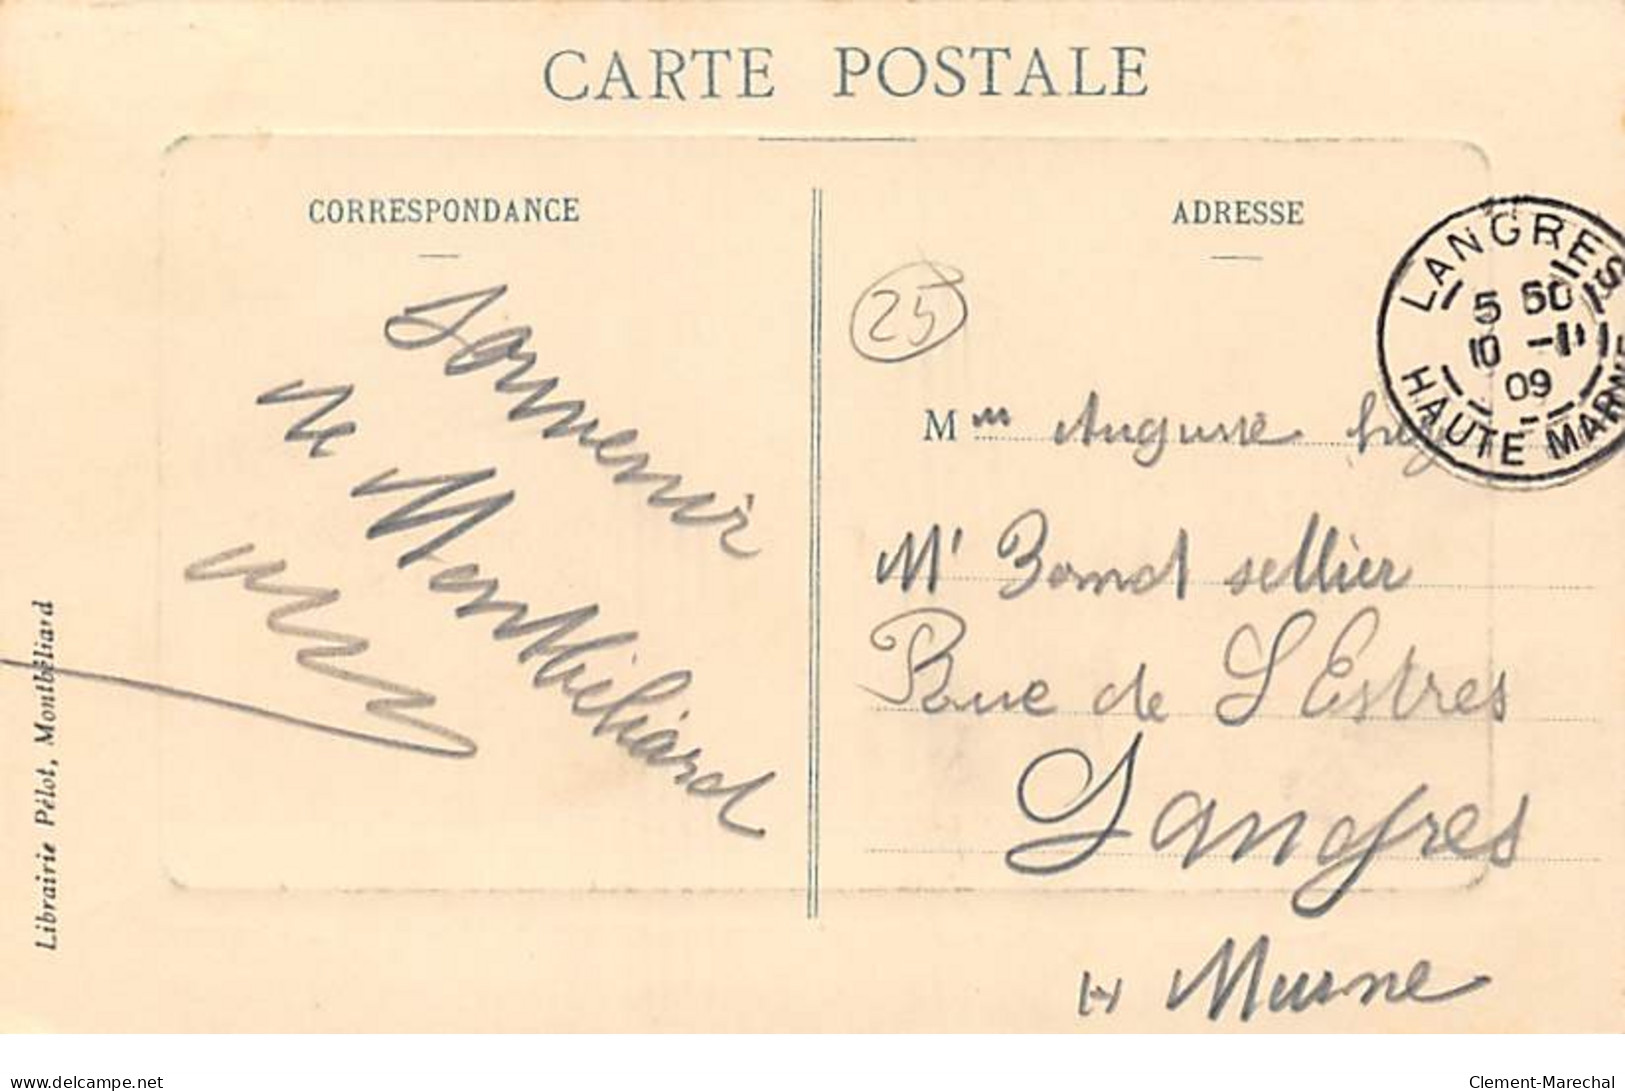 CARTE POSTALE
CORRESPONDANCE
Souvenir
de Montbéliard
ADRESSE
25
LANGRES
5 50
10 -11
09
HAUTE MARNE
Mme Auguste
Mr sellier
Rue de L'Estres
Langres
H Marne
Librairie Pélot, Montbéliard
delcampe.net
Clement-Marechal